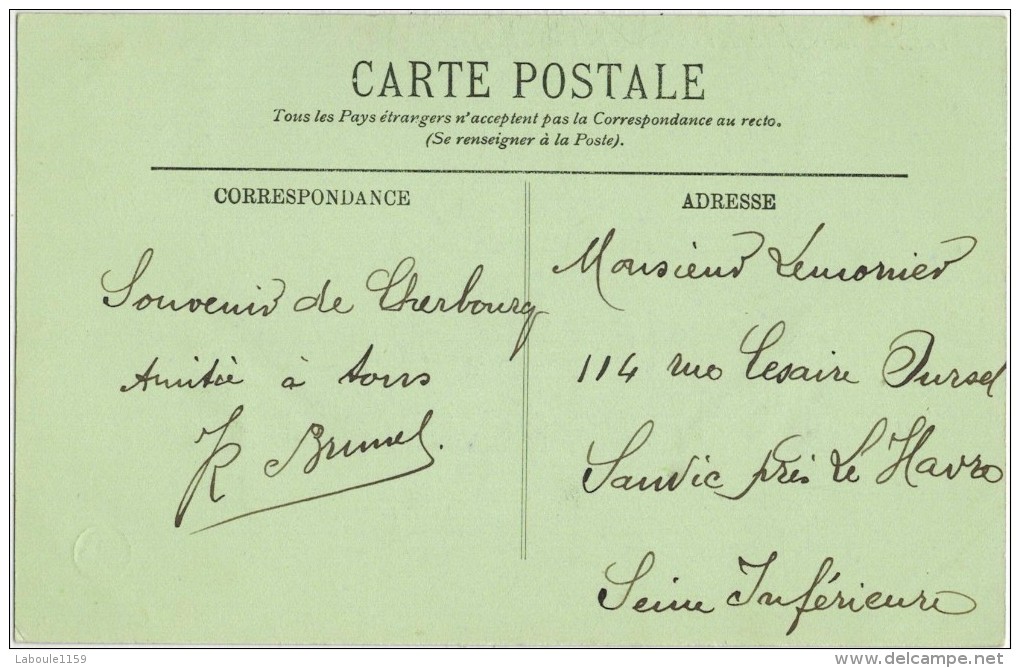 CARTE POSTALE
Tous les Pays étrangers n'acceptent pas la Correspondance au recto.
(Se renseigner à la Poste).
CORRESPONDANCE
Souvenir de Cherbourg
Amitié à tous
Brunel.
ADRESSE
Monsieur Lemonier
114 rue Cesaire Oursel
Sanvic près Le Havre
Seine Inférieure
Laboule1159
www.delcampe.net